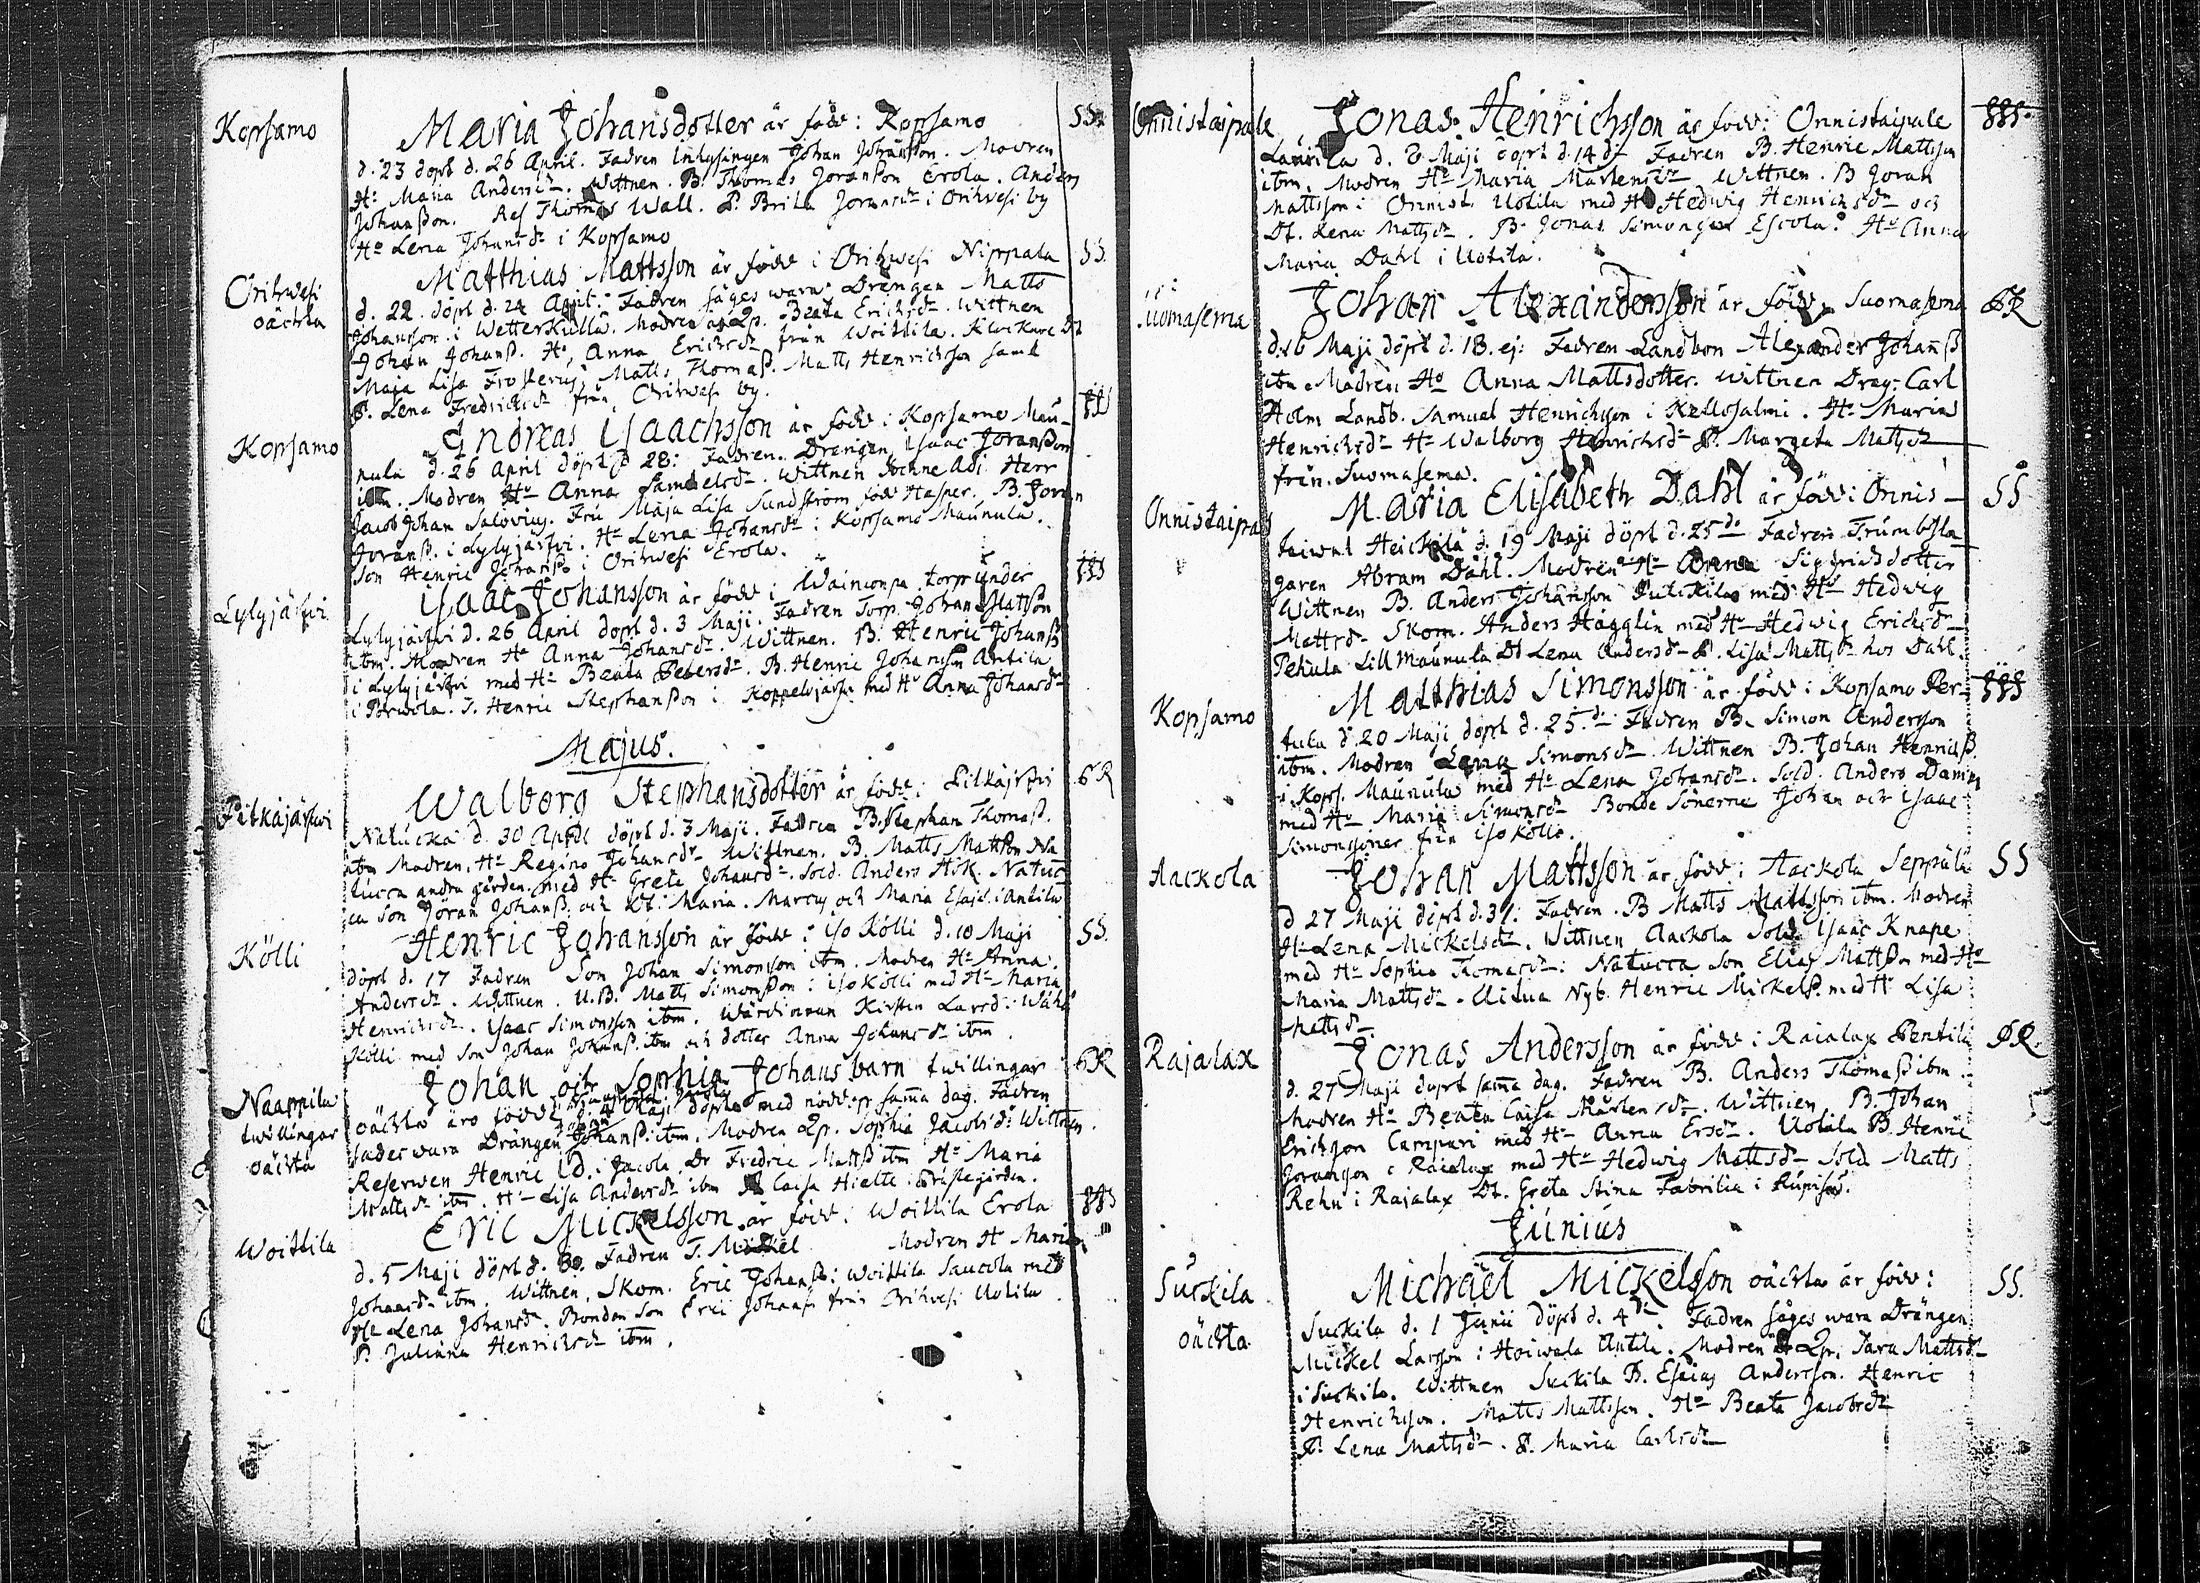 Kopsamo
Maria Johansdotter är född i Kopsamo
SS.
d. 23 döpt d. 26 April. Fadren Inhysingen Johan Johansson. Modren
Ho: Maria Andersdr. Wittnen. B. Thomas Joransson Erola. Anders
Johansson. Res Thomas Wall. P. Brita Joransdr i Orihvesi by
Ho Lena Johansdr i Kopsamo
Orihwesi oächta
Matthias Mattsson är född i Orihwesi Nippala
SS.
d. 22. döpt d. 24 April. Fadren säges wara Drengen Matts
Johansson i Wetterskulla. Modren är Lp. Beata Ericsdr. Wittnen
Johan Johanss. Ho, Anna Ericsdr från Woittila. Klockare Dt
Maja Lisa Frosterus, Matts Thomass. Matts Henricsson samt
P. Lena Fredricsdr från Orihwesi by.
Kopsamo
Andreas Isaachsson är född i Kopsamo Mau-
nula d. 26 April döpt d 28: Fadren. Drengen Isaac Joransson
ibm. Modren Ho Anna Samuelsdr. Wittnen Sochne Adj. Herr
Jacob Johan Salovius. Fru Maja Lisa Sundström född Hasper. B. Joran
Joranss. i Lylyjärfvi. Ho Lena Johansdr i Kopsamo Maunula.
Son Henric Johanss i Orihwesi Erola.
Lylyjärfvi
Isaac Johansson är född i Wainionpa torp under
Lylyjärfvi d. 26 April döpt d. 3 Maji. Fadren Torp. Johan Matsson
ibm. Modren Ho Anna Johansdr. Wittnen. B. Henric Johanss
i Lylyjärfvi med Ho Beata Petersdr. B. Henric Johansson Antila
i Pörwola. T. Henric Stephansson i Koppelojärfvi med Ho Anna Johansdr
Majus.
Pitkäjärfwi
Walborg Stephansdotter är född i Pitkäjärfvi
GR
Natucka d. 30 Aprill döpt d. 3 Maji. Fadren B. Stephan Thomass.
ibm Modren, Ho Regina Johansdr. Wittnen. B. Matts Mattson Na
tucca andra gården med Ho Greta Johansdr. Sold. Anders Hök. Natuc
ca Son Jöran Johanss. och Dt. Maria. Marcus och Maria Esajsd. i Antila
Kölli
Henric Johansson är född i iso Kölli d. 10 Maji
SS.
döpt d. 17 Fadren Son Johan Simonsson ibm. Modren Ho Anna
Andersdr. Wittnen. U.B. Matts Simonsson i iso Kölli med Ho Maria
Henricsdr. Isaac Simonsson ibm. Wärdinnan Kirstin Larsd. i Wähä
Kölli med Son Johan Johanss. ibm och dotter Anna Johansdr ibm.
Naappila twillingar oächta
Johan och Sophia Johans barn twillingar
GR
oächta äro födde i Naappila d. 4 Maji döpte med nöddop samma dag. Fadren
sades wara Drängen Johan Johanss. ibm. Modren Lp. Sophia Jacobsdr. Wittnen.
Reserwen Henric i Jacola. Dr Fredric Mattss ibm Ho Maria
Mattsdr ibm. Ho Lisa Andersdr ibm Caisa Hiette i Prästegården.
Woittila
Eric Mickelsson är född i Woittila Erola
d. 5 Maji döpt d. Fadren T. Mickel Modren Ho Maria
Johansdr ibm. Wittnen, Skom. Eric Johanss i Woittila Saucola med
Ho Lena Johansdr. Bondan Son Eric Johanss från Orihvesi Uotila.
P. Juliana Henricsdr ibm.
Onnistaipale
Jonas Henrichsson är född i Onnistaipale
Laurila d. 8 Maji döpt d. 14 dt Fadren B. Henric Mattsson
ibm. Modren Ho Maria Martensdr Wittnen. B Joran
Mattsson i Onnist. Uotila med Ho Hedwig Henricsdr och
Dt. Lena Mattsdr. B. Jonas Simonsson Escola. Ho Anna
Maria Dahl i Uotila.
Suomasema
Johan Alexandersson är född Suomasema
GR
d. 16 Maji döpt d. 18. ej: Fadren Landbon Alexander Johanss
ibm Modren Ho Anna Mattsdotter. Wittnen Drag. Carl
Holm Landb. Samuel Henrichsson i Kellosalmi. Ho Maria
Henricsdr Ho Walborg Henricsdr P. Margeta Mattsdr
från Suomasema.
Onnistaipal
Maria Elisabeth Dahl är född i Onnis-
SS
taiwal Heickilä d. 19 Maji döpt d. 25 dt Fadren Trumbsla-
garen Abram Dahl. Modren Ho Anna Sigfridsdotter
Wittnen B. Anders Johansson Putkila med Ho Hedwig
Mattsdr Skom. Anders Hägglin med Ho Hedwig Ericsdr
Pekula Lill Maunula Dt Lena Andersdr P. Lisa Mattsdr hos Dahl.
Kopsamo
Matthias Simonsson är född i Kopsamo Per-
tula d. 20 Maji döpt d. 25. dt Fadren B. Simon Andersson
ibm. Modren Lena Simonsdr Wittnen B. Johan Henricss
i Kops. Maunula med Ho Lena Johansdr. Sold. Anders Damm
med Ho Maria Simonsdr Bonde Sönerne Johan och Isaac
Simonssöner från iso Kölli.
Aackola
Johan Mattsson är född i Aackola Seppälä
SS
d 27 Maji döpt d. 31. Fadren. B Matts Mattsson ibm. Modren
Ho Lena Mickelsdr. Wittnen Aackola Sold. Isaac Knape
med Ho Sophia Thomasdr. Natucca Son Elias Mattss med Ho
Maria Mattsdr. Uitua Nyb. Henric Mickelss. med Ho Lisa
Mattsdr
Rajalax
Jonas Andersson är född i Raialax Pentilä
GR.
d. 27 Maji döpt samma dag. Fadren B. Anders Thomass ibm.
Modren Ho Beata Caisa Mårtensdr. Wittnen B. Johan
Ericsson Campari med Ho Anna Ersdr. Uotila B. Henric
Joransson i Raialax med Ho Hedwig Mattsdr Sold Matts
Rehn i Rajalax Dt. Greta Stina Fabrilia i Rupisa.
Junius
Suckila oächta
Michaël Mickelsson oächta är född i
SS.
Suckila d. 1 Junii döpt d. 4 dt. Fadren säges wara Drängen
Mickel Larsson i Hoiwala Antila. Modren är Lp. Sara Mattsdr
i Suckila. Wittnen Suckila B. Esaias Andersson. Henric
Henrichsson. Matts Mattsson. Ho Beata Jacobsdr
P. Lena Mattsdr. P. Maria Carlsdr